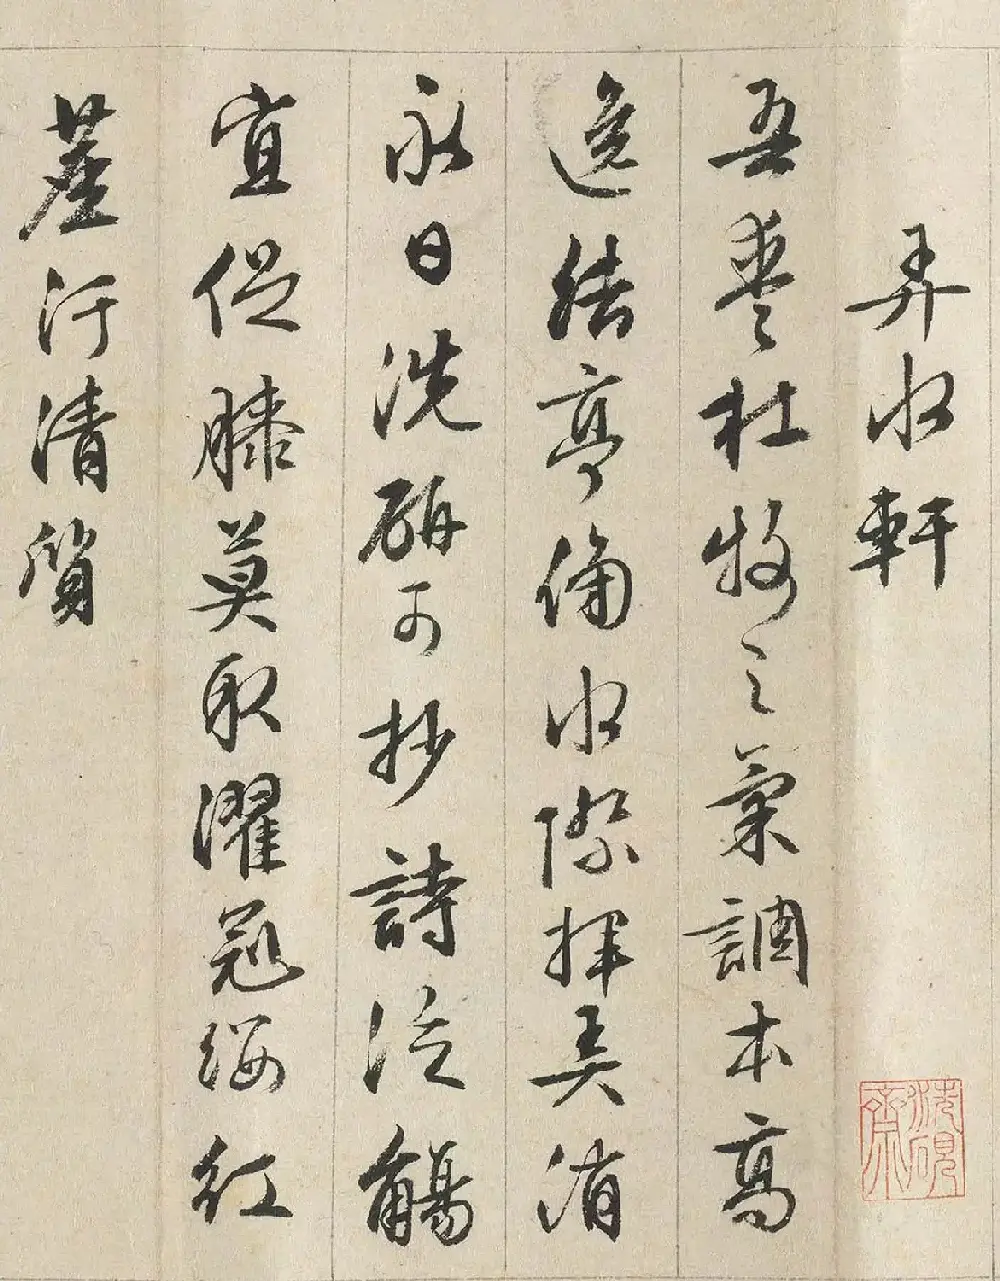 弄水軒
吾愛杜牧之氣調本高
逸結亭侵水際揮弄消
永日洗研可抄詩泛觴
宜促膝莫取濯冠纓紅
塵汙清質
洗硯齋